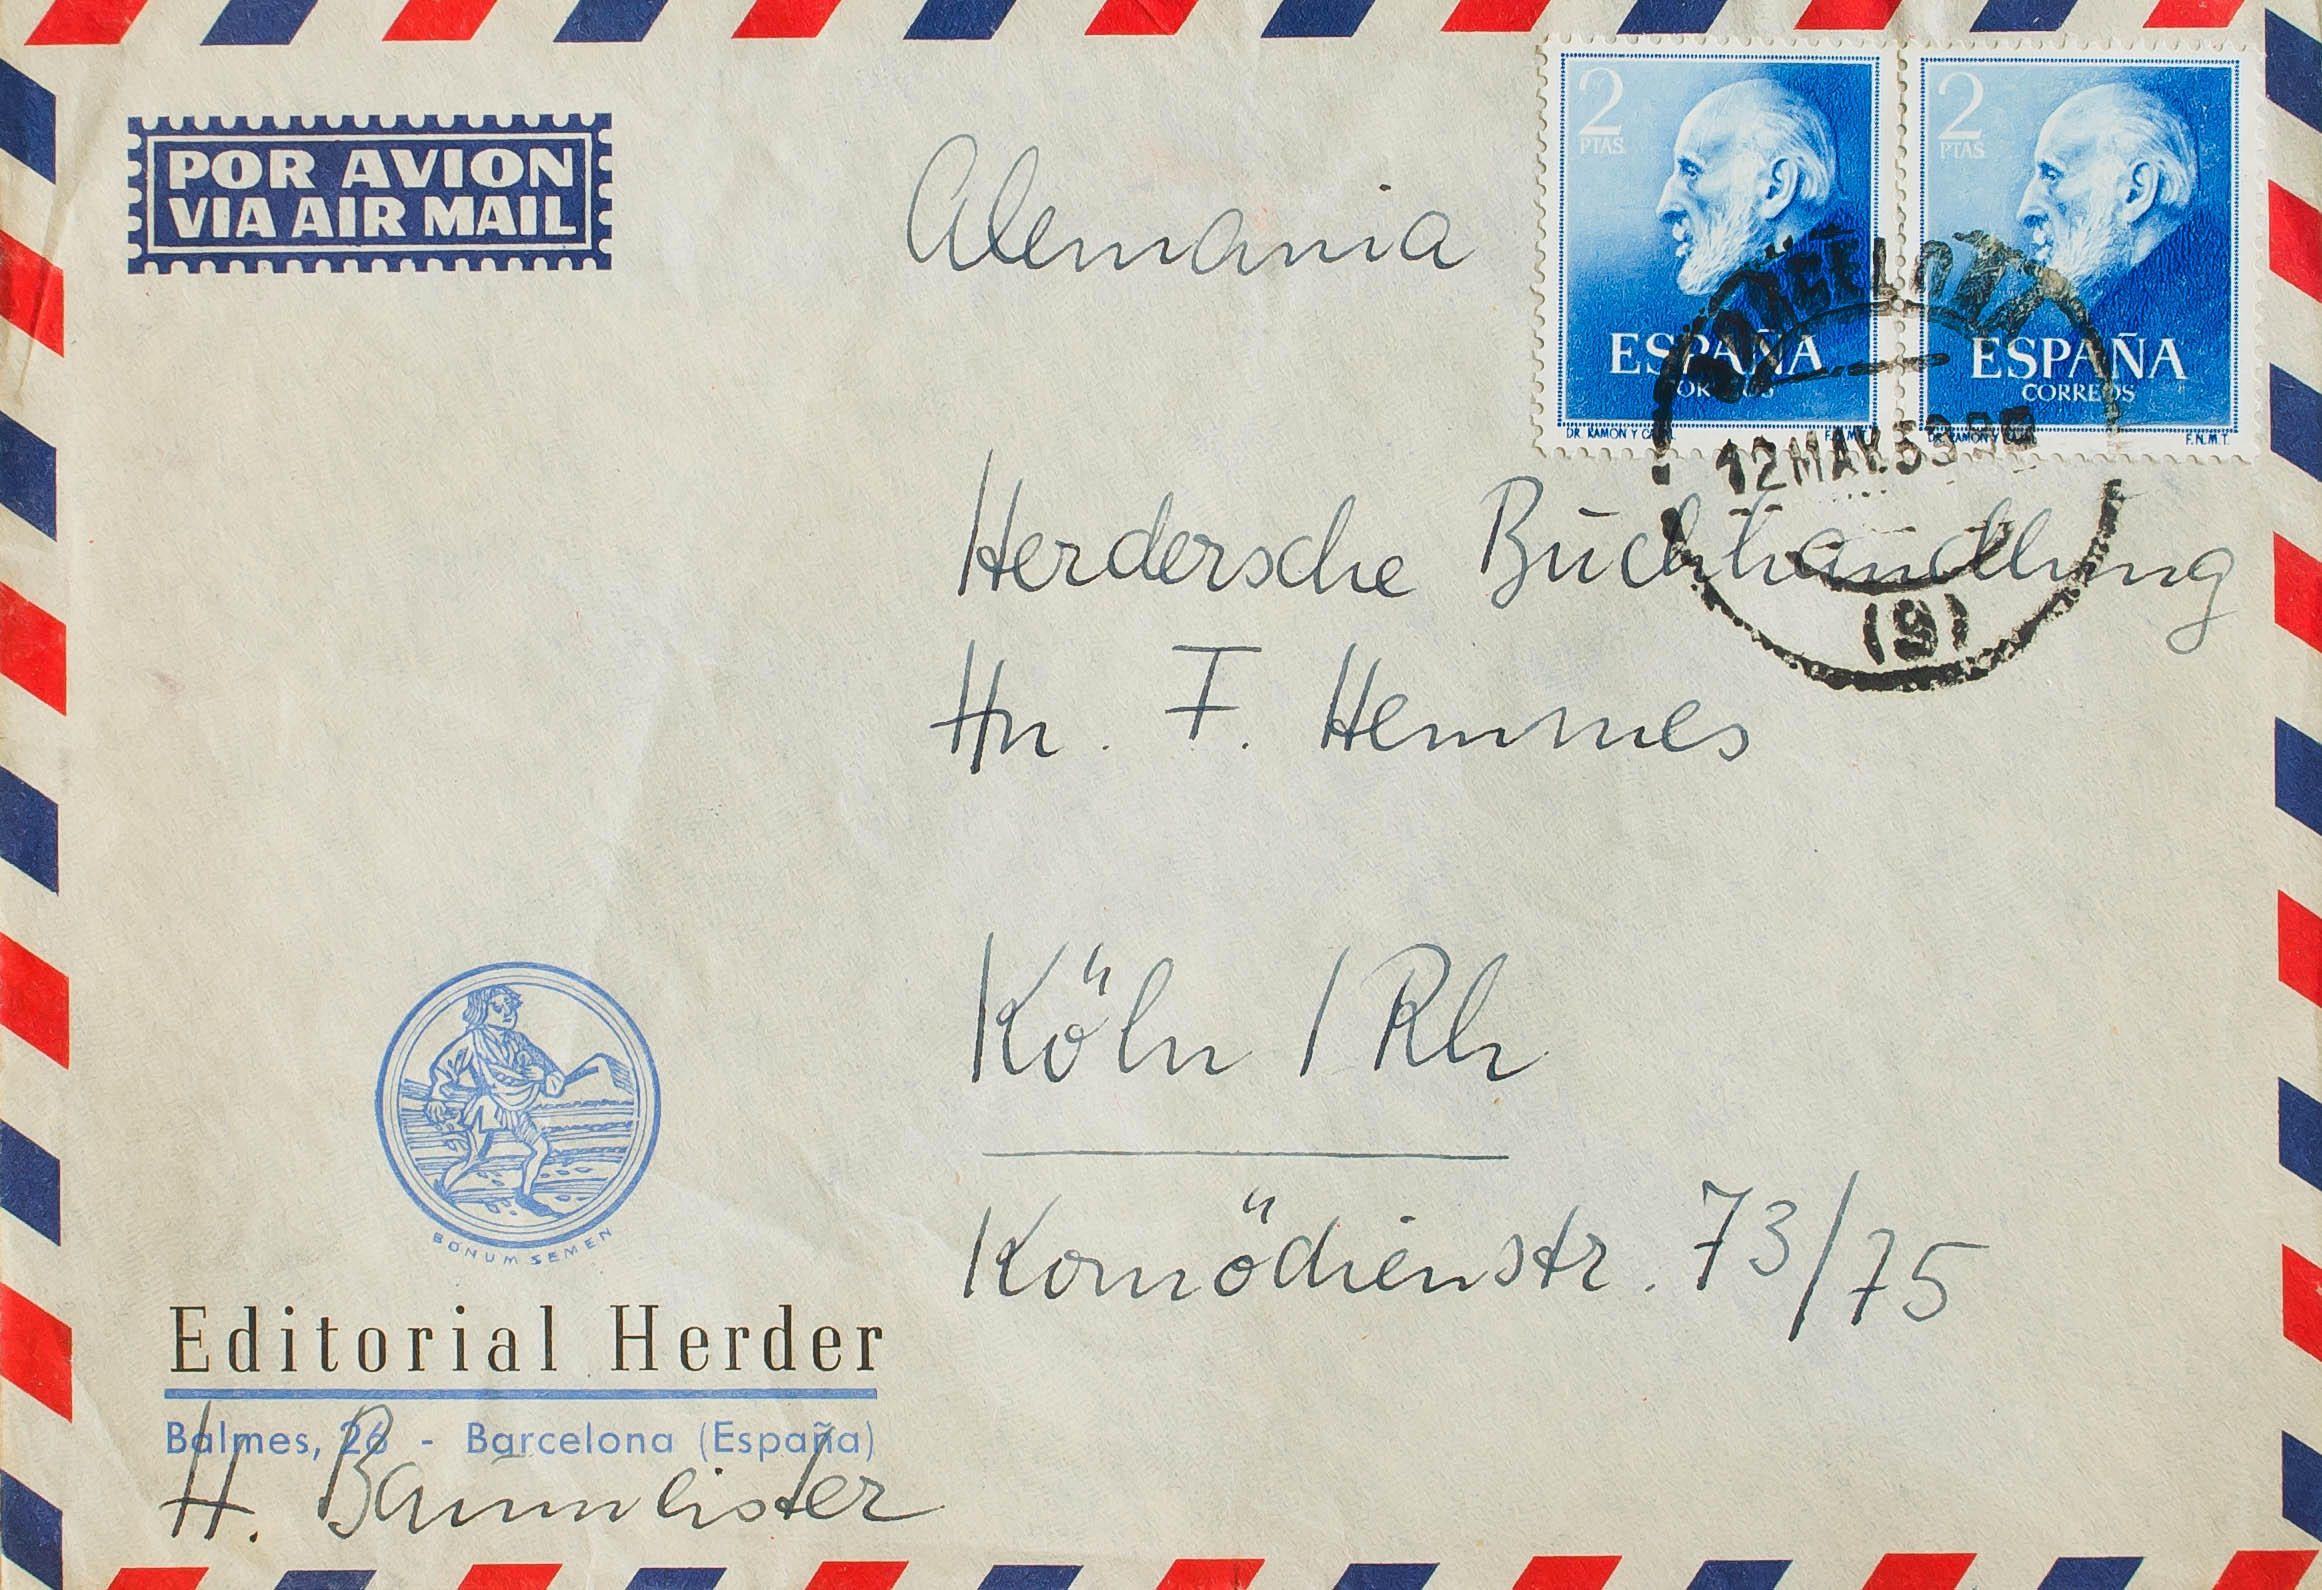 POR AVION
VIA AIR MAIL
Alemania
2
PTAS
ESPAÑA
CORREOS
DR. RAMON Y CAJAL F.N.M.T.
2
PTAS
ESPAÑA
CORREOS
DR. RAMON Y CAJAL F.N.M.T.
BARCELONA
12 MAY. 53
(9)
Herdersche Buchhandlung
Hn. F. Hemmes
Köln / Rh
Komödienstr. 73/75
BONUM SEMEN
Editorial Herder
Balmes, 26 - Barcelona (España)
H.